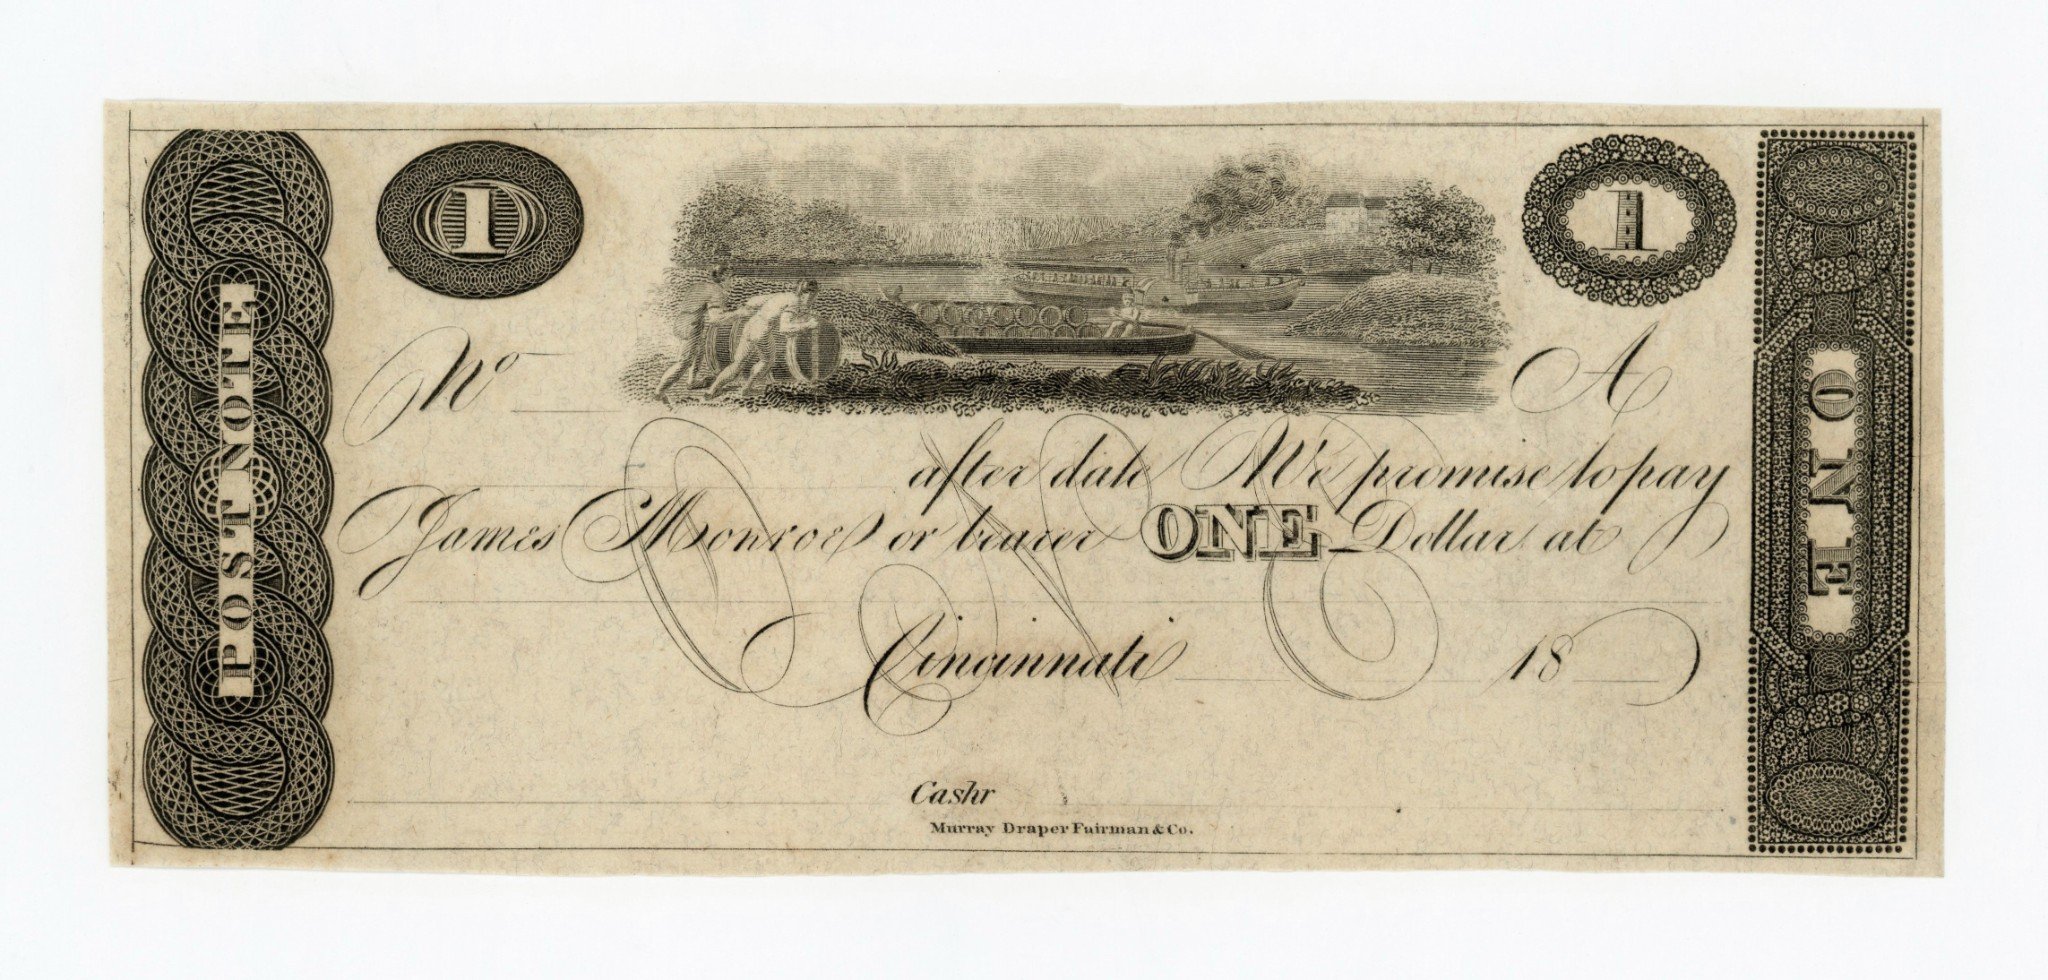 POST NOTE
1
1
No
A
after date We promise to pay
James Monroe or bearer ONE Dollar at
ONE
Cincinnati 18
Cashr
Murray Draper Fairman & Co.
ONE